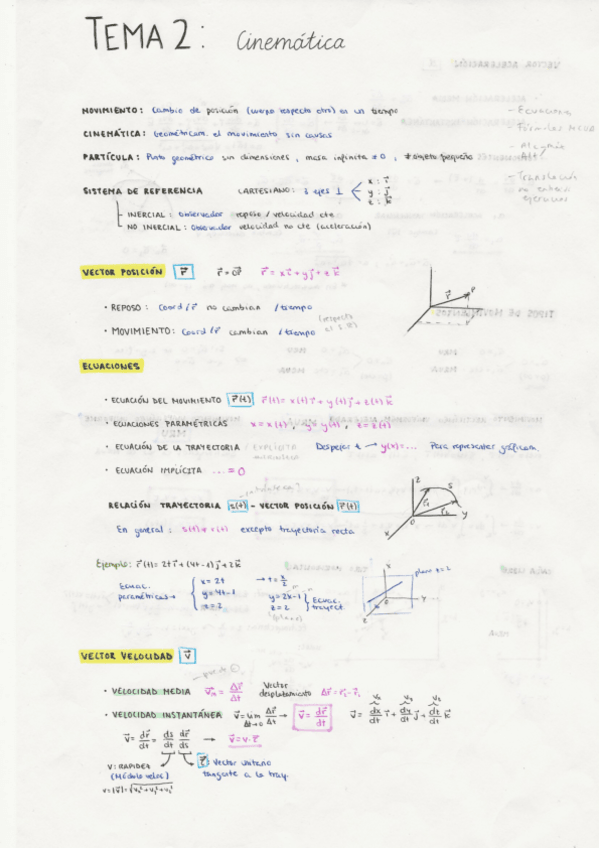 TEMA 2: Cinemática
MOVIMIENTO: Cambio de posición (cuerpo respecto otro) en un tiempo
CINEMÁTICA: Geométricam. el movimiento sin causas
PARTÍCULA: Punto geométrico sin dimensiones, masa infinita ≠ 0, ≠ objeto pequeño
SISTEMA DE REFERENCIA CARTESIANO: 3 ejes ⊥ x: i⃗
y: j⃗
z: k⃗
INERCIAL: Observador reposo / velocidad cte
NO INERCIAL: Observador velocidad no cte (aceleración)
VECTOR POSICIÓN r⃗ r⃗ = OP r⃗ = x i⃗ + y j⃗ + z k⃗
· REPOSO: Coord / r⃗ no cambian / tiempo
· MOVIMIENTO: Coord / r⃗ cambian / tiempo (respecto al S.R)
r⃗ P
ECUACIONES
· ECUACIÓN DEL MOVIMIENTO r⃗(t) r⃗(t) = x(t) i⃗ + y(t) j⃗ + z(t) k⃗
· ECUACIONES PARAMÉTRICAS x = x(t), y = y(t), z = z(t)
· ECUACIÓN DE LA TRAYECTORIA Despejar t → y(x) = ... Para representar gráficam.
· ECUACIÓN IMPLÍCITA ... = 0
RELACIÓN TRAYECTORIA s(t) - VECTOR POSICIÓN r⃗(t)
En general: s(t) ≠ r(t) excepto trayectoria recta
z s r₁ r₂ O y x
Ejemplo: r⃗(t) = 2t i⃗ + (4t-1) j⃗ + 2 k⃗
Ecuac. paramétricas → x = 2t → t = x/2
y = 4t-1 y = 2x-1
z = 2 z = 2 Ecuac. trayect.
(plano)
plano z = 2
VECTOR VELOCIDAD v⃗
· VELOCIDAD MEDIA v⃗ₘ = Δr⃗/Δt Vector desplazamiento Δr⃗ = r⃗₂ - r⃗₁
· VELOCIDAD INSTANTÁNEA v⃗ = lim Δt→0 Δr⃗/Δt → v⃗ = dr⃗/dt v⃗ = dx/dt i⃗ + dy/dt j⃗ + dz/dt k⃗
v⃗ = dr⃗/dt = ds/dt dr⃗/ds → v⃗ = v · τ⃗
v: RAPIDEZ τ⃗: Vector unitario
(Módulo veloc) tangente a la tray.
v = |v⃗| = √vx² + vy² + vz²